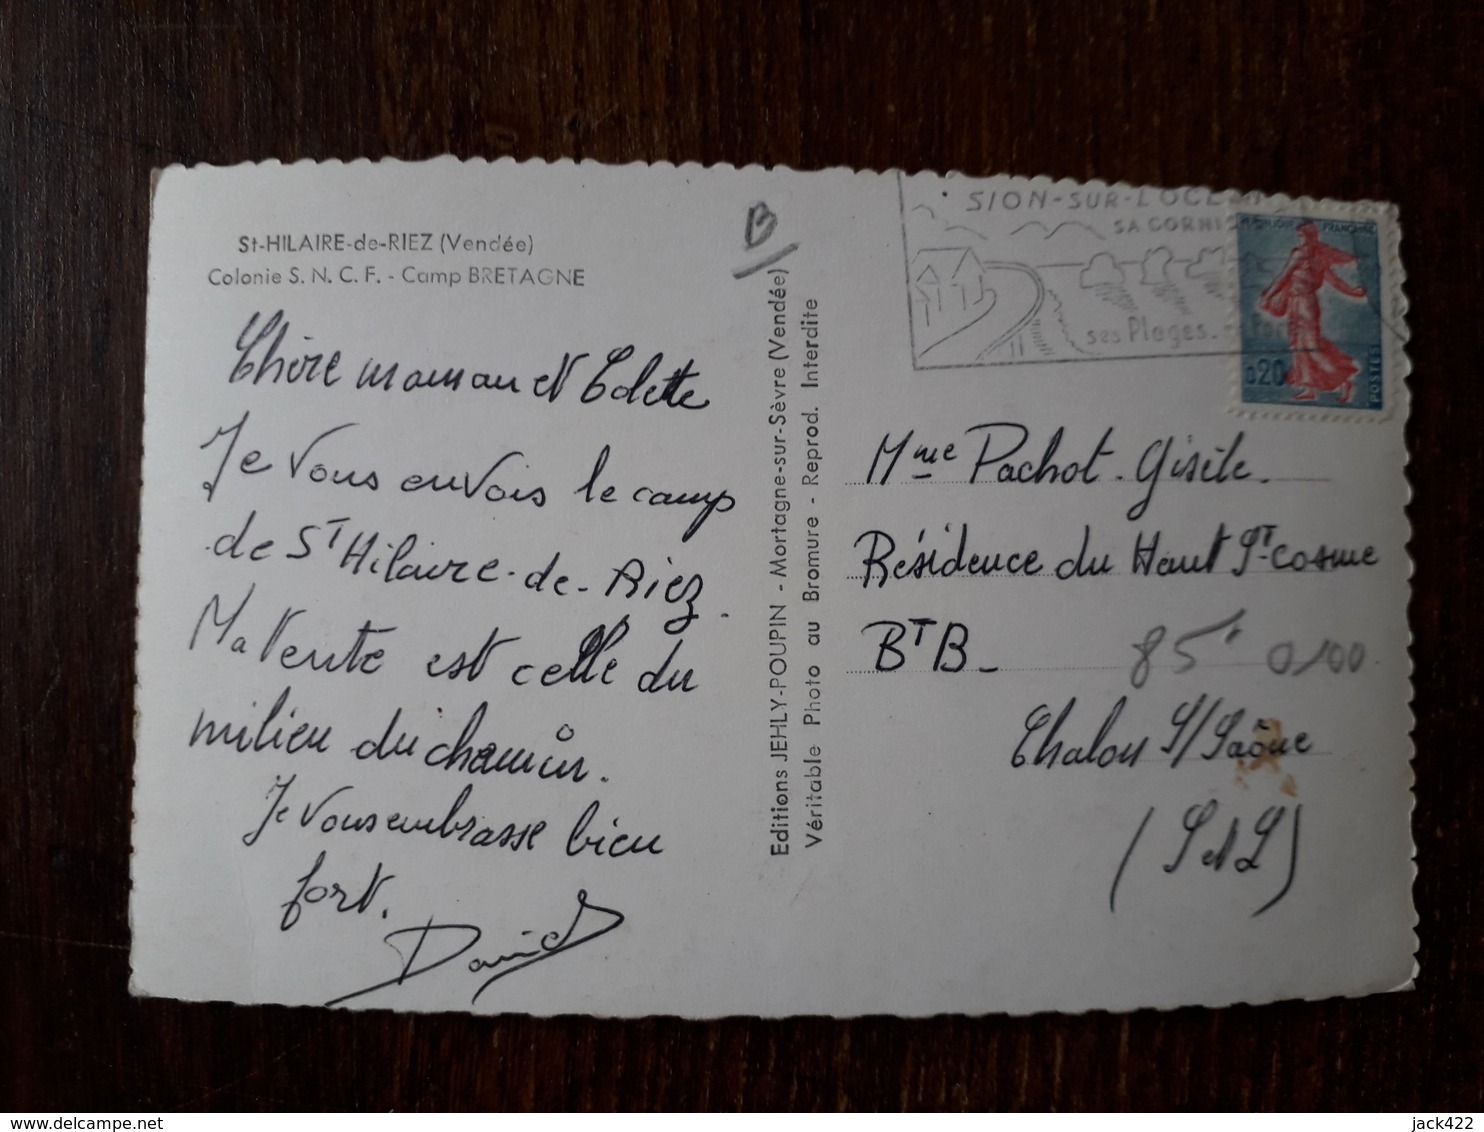 St-HILAIRE-de-RIEZ (Vendée)
Colonie S. N. C. F. - Camp BRETAGNE
Chère maman et Colette
Je vous envois le camp
de ST Hilaire-de-Riez.
Ma tente est celle du
milieu du chemin.
Je vous embrasse bien
fort.
David
B
Editions JEHLY-POUPIN - Mortagne-sur-Sèvre (Vendée)
Véritable Photo au Bromure - Reprod. Interdite
SION-SUR-L'OCEAN
SA CORNI
ses Plages
FRANÇAISE
0,20
POSTES
Mme Pachot-Gisèle.
Résidence du Haut ST-Cosme
BT B-
85 0100
Chalon S/Saône
(S et L)
delcampe.net
jack422